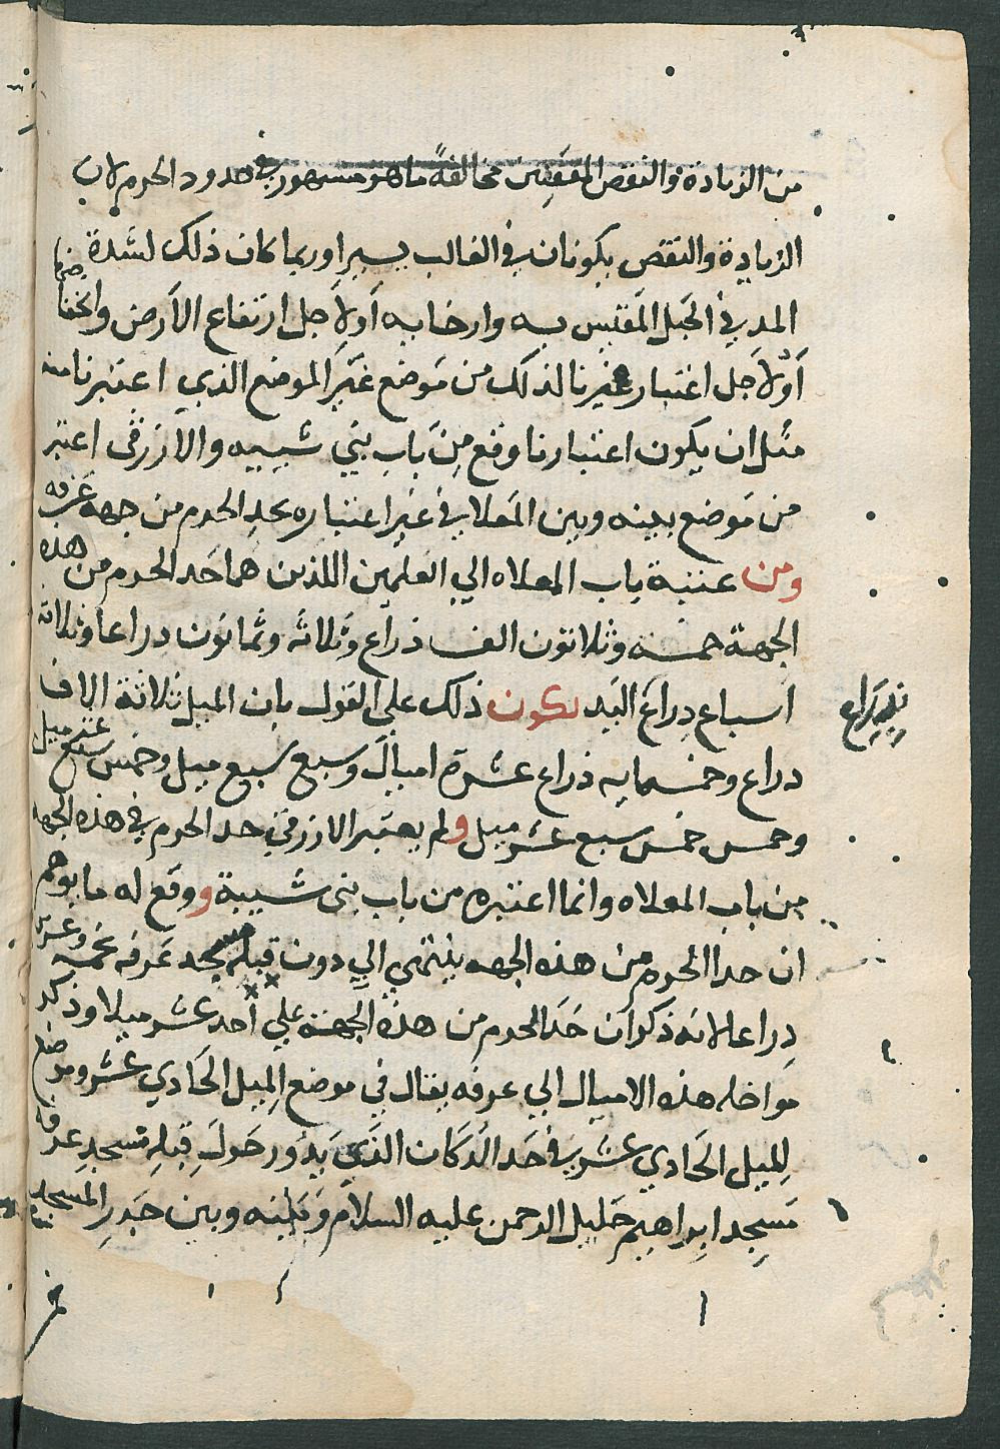 من الزيادة والنقص المقتضيين مخالفةً ما هو مشهور في حدود الحرم لان
الزيادة والنقص يكونان في الغالب يسيرا وربما كان ذلك لشدة
المد في الحبل المقتبس به وارخايه أو لاجل ارتفاع الأرض وانخفاضها
أو لاجل اعتبار غيرنا لذلك من موضع غير الموضع الذي اعتبرنا منه
مثل ان يكون اعتبارنا وقع من باب بني شيبيه والازرقى اعتبر
من موضع بينه وبين المعلا في غير اعتباره بحد الحرم من جهة عرفه
ومن عتبة باب المعلاه الي العلمين اللذين هما حد الحرم من هذه
الجهة خمسه وثلاثون الف ذراع وثلاثه وثمانون دراعا وثلاثه
اسباع دراع اليد يكون ذلك علي القول بان الميل ثلاثة الاف
دراع وخمسمايه ذراع عشرة اميال وسبع سبع ميل وخمس سبع عشر ميل
وخمس خمس سبع عشر ميل ولم يعتبر الازرقي حد الحرم في هذه الجهه
من باب المعلاه وانما اعتبره من باب بنى شيبة ووقع له ما يوهم
ان حد الحرم من هذه الجهه ينتهي الي دون قبلة مسجد عرفه بخمسه وعشرين
دراعا لانه ذكر ان حد الحرم من هذه الجهة علي احد عشر ميلا وذكر
مواضع هذه الاميال الي عرفه فقال في موضع الميل الحادي عشر وموضع
الميل الحادي عشر في حد الدكان الذي يدور حول قبلة مسجد عرفه
مسجد ابراهيم خليل الرحمن عليه السلام وبينه وبين جدر المسجد